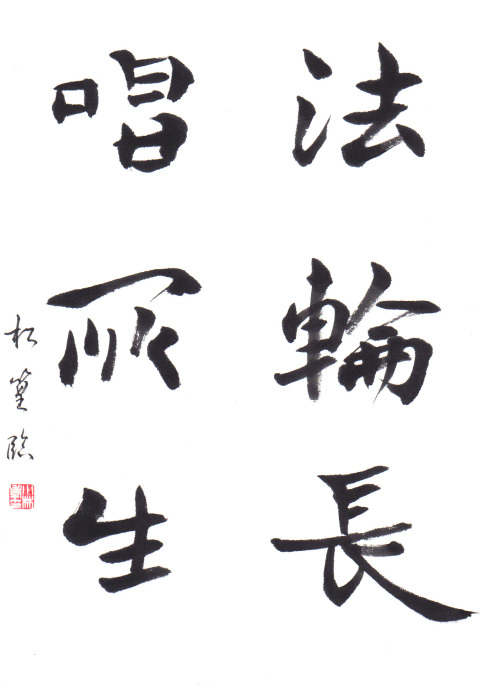 法輪長
唱衆生
松篁臨